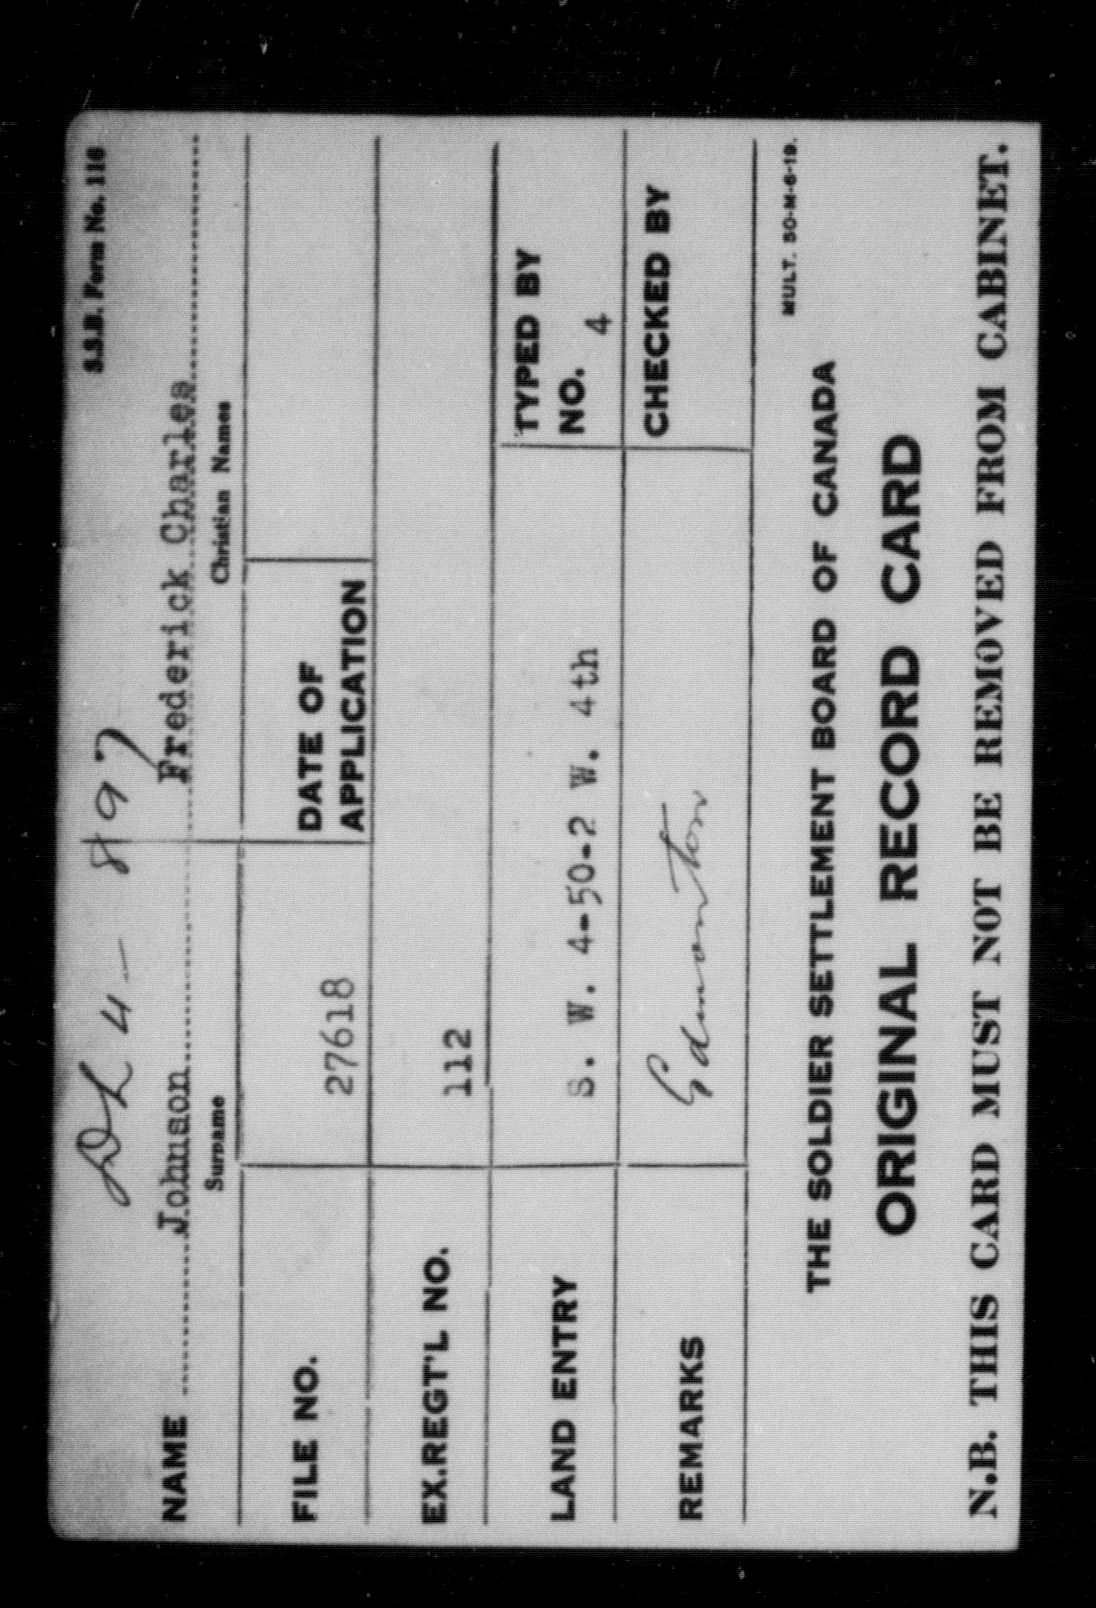 S.S.B. Form No. 116
DL 4-897
NAME Johnson Frederick Charles
Surname Christian Names
FILE NO. 27618 DATE OF APPLICATION
EX.REGT'L NO. 112
LAND ENTRY S. W. 4-50-2 W. 4th TYPED BY NO. 4
REMARKS Edmonton CHECKED BY
MULT. 50-M-6-19.
THE SOLDIER SETTLEMENT BOARD OF CANADA
ORIGINAL RECORD CARD
N.B. THIS CARD MUST NOT BE REMOVED FROM CABINET.